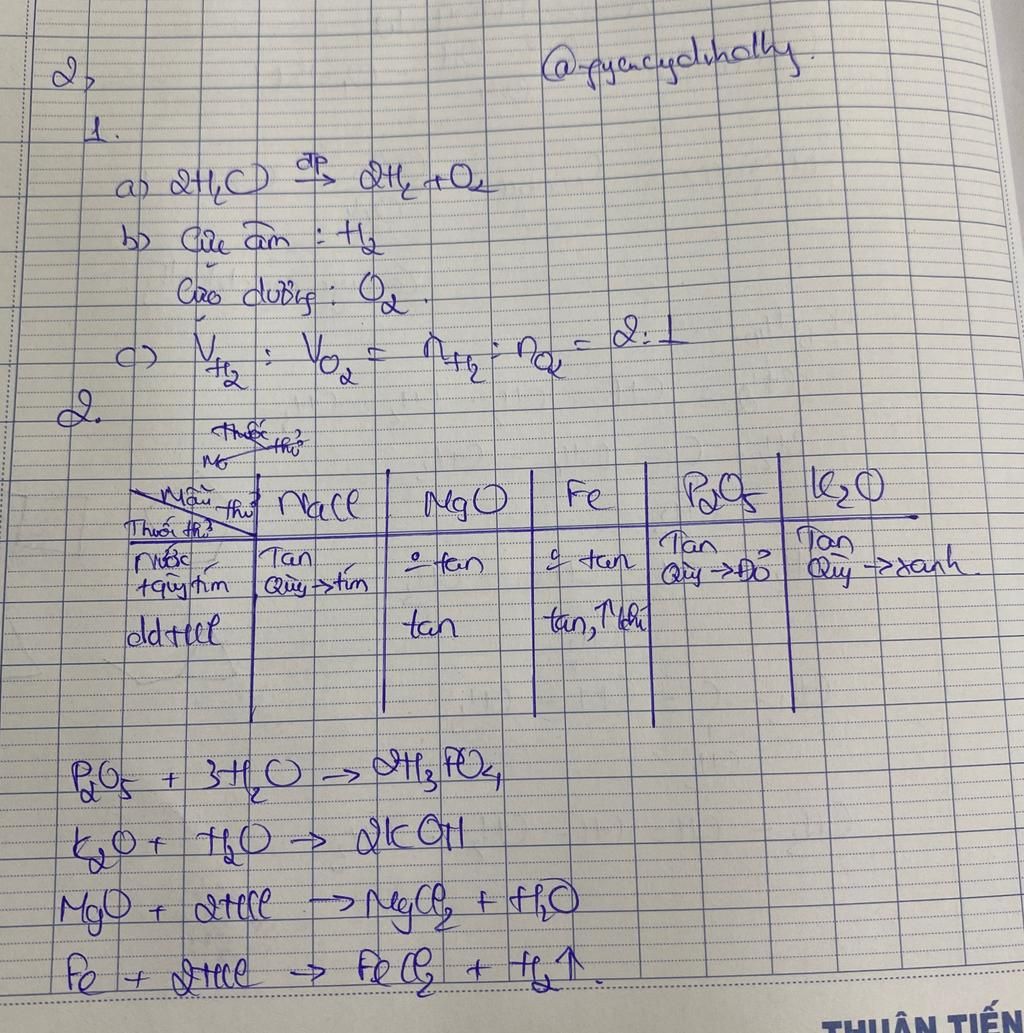 2,
1.
a) 2H₂O đp→ 2H₂ + O₂
b) Cực âm : H₂
Cực dương : O₂.
c) V_H₂ : V_O₂ = n_H₂ : n_O₂ = 2:1
2.
Thuốc thử
Mẫu thử | NaCl | MgO | Fe | P₂O₅ | K₂O
Thuốc thử
Nước + Quỳ tím | Tan Quỳ → tím | o tan | o tan | Tan Quỳ → Đỏ | Tan Quỳ → xanh
dd HCl | | tan | tan, ↑ khí
P₂O₅ + 3H₂O → 2H₃PO₄
K₂O + H₂O → 2KOH
MgO + 2HCl → MgCl₂ + H₂O
Fe + 2HCl → FeCl₂ + H₂↑.
THUẬN TIẾN